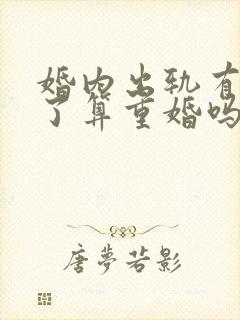 婚内出轨有
了算重婚吗
唐夢若影